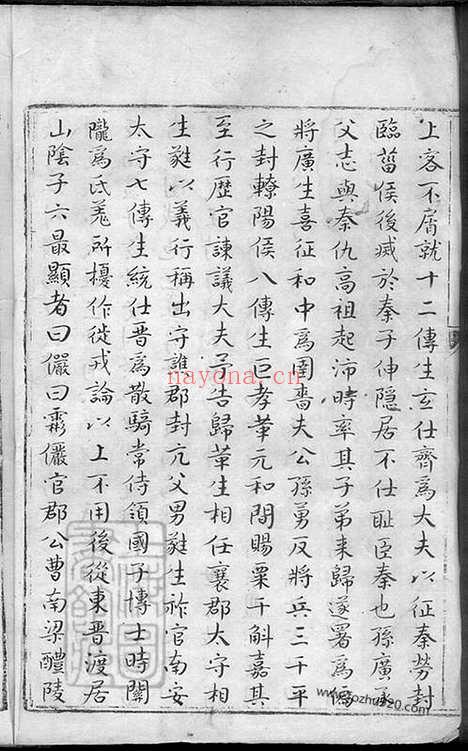 上客不屑就十二傳生玄仕齊為大夫以征秦勞封
臨菑侯後滅於秦子伸隱居不仕恥臣秦也孫廣承
父志與秦仇高祖起沛時率其子弟来歸遂署為偽
將廣生喜征和中為圉嗇夫公孫勇反將兵三千平
之封轑陽侯八傳生巨孝華元和間賜粟千斛嘉其
至行歴官諫議大夫予告歸華生相任襄郡太守相
生蕤以義行稱出守譙郡封亢父男蕤生祚官南安
太守七傳生統仕晋為散騎常侍領國子博士時關
隴為氐羗所擾作徙戎論以上不用後從東晋渡居
山陰子六最顯者曰儼曰霦儼官郡公曹南梁醴陵
nayona.cn
www.fozhu920.com